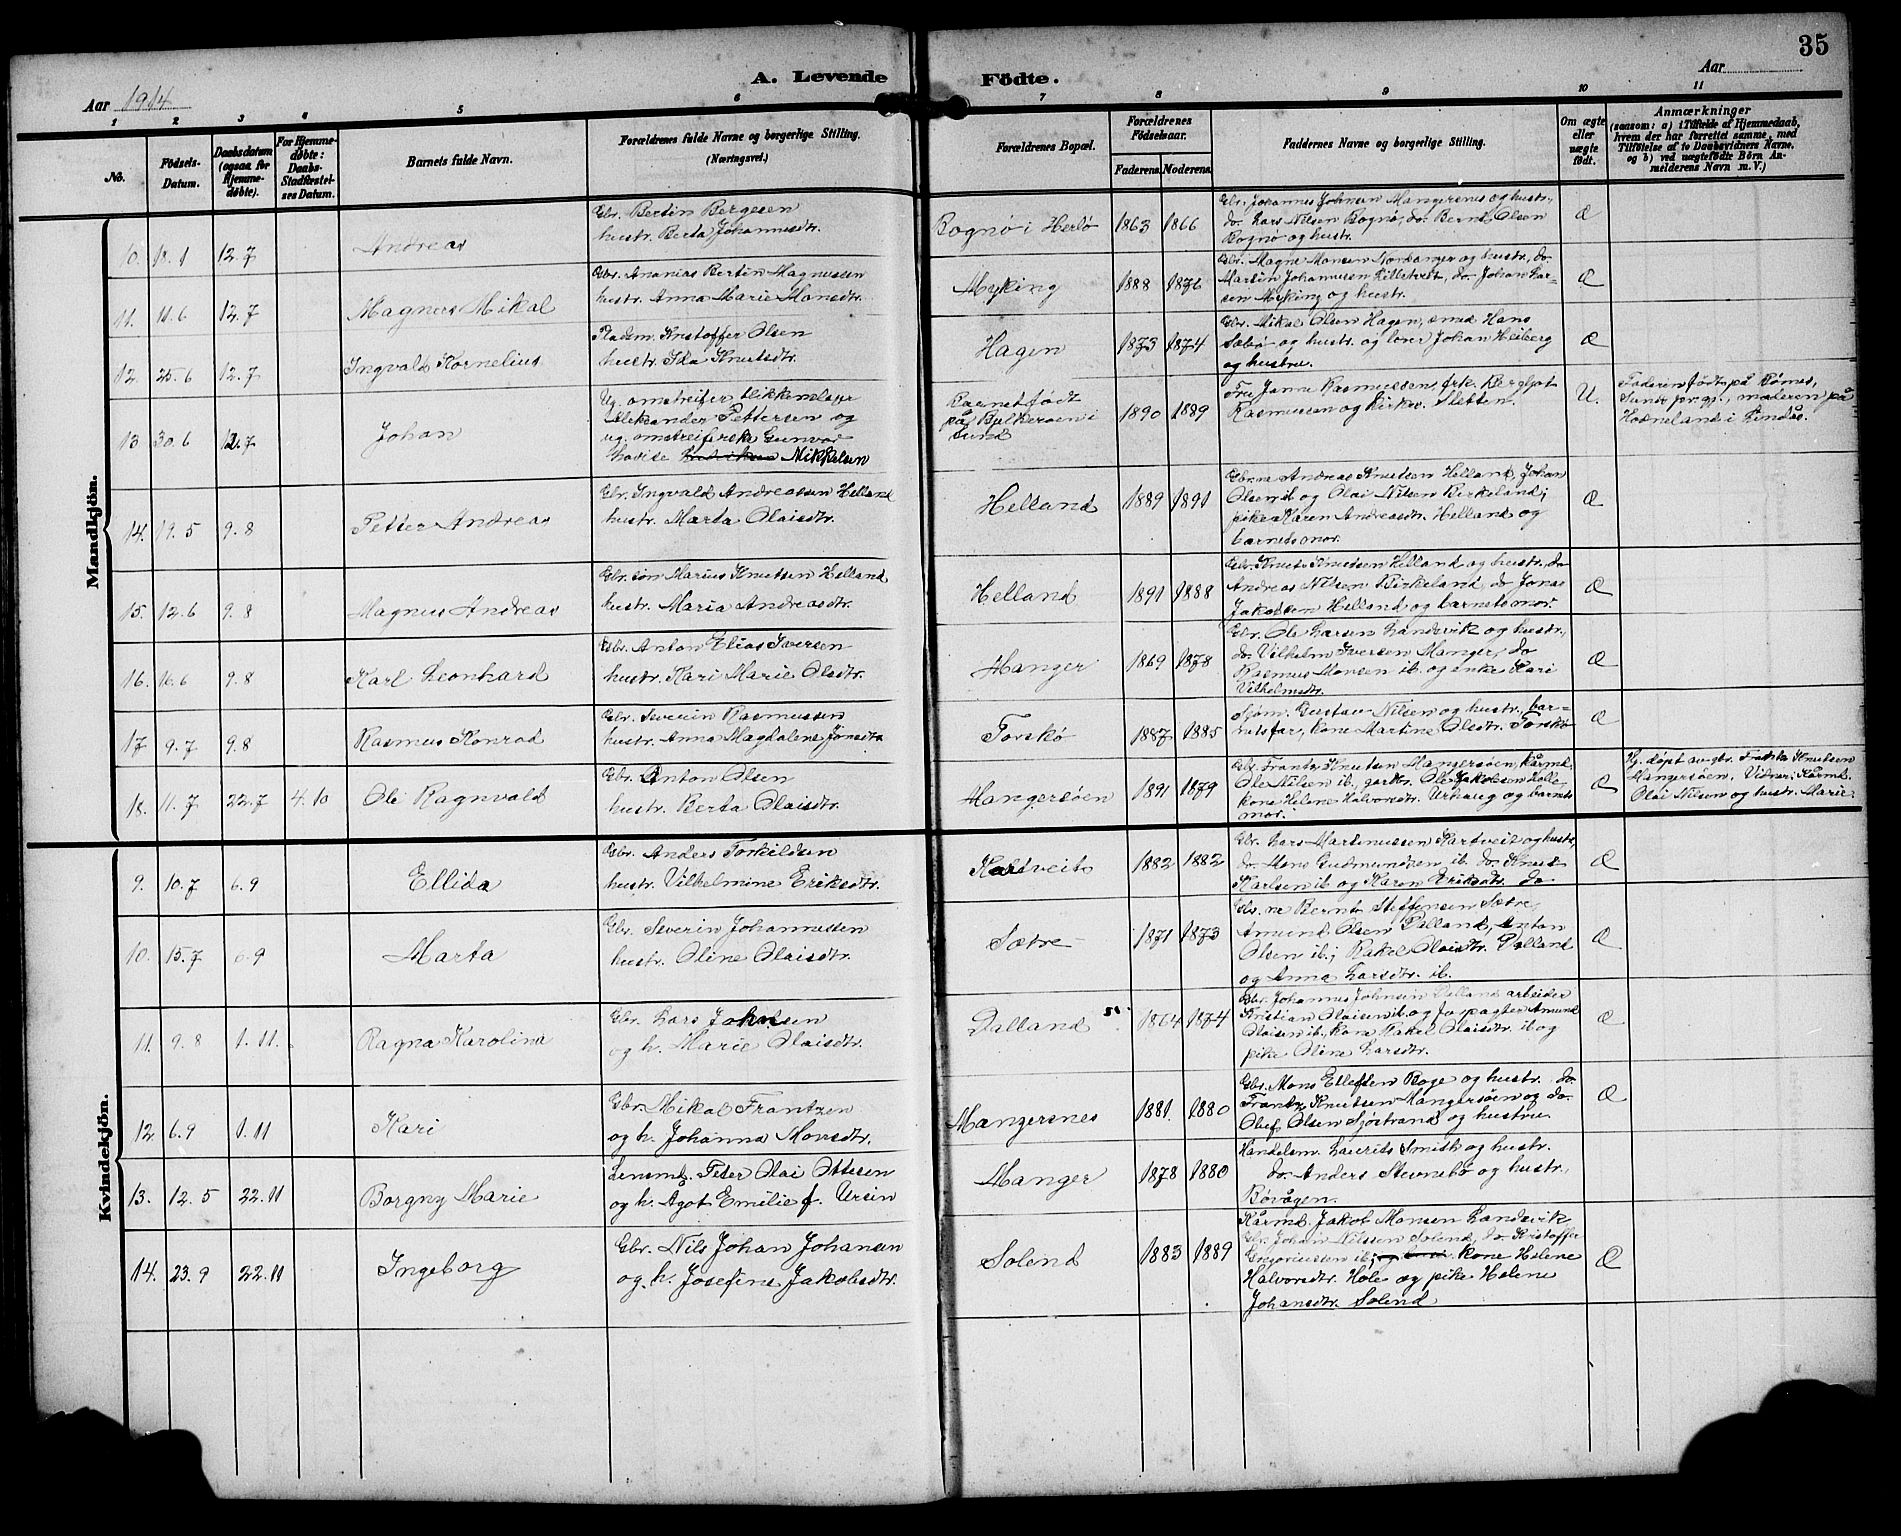 35
A. Levende Födte.
Aar 1914
Aar
1 2 3 4 5 6 7 8 9 10 11
No.
Födsels-
Datum.
Daabsdatum
(ogsaa for
Hjemme-
døbte).
For Hjemme-
døbte:
Daabs-
Stadfæstel-
ses Datum.
Barnets fulde Navn.
Forældrenes fulde Navne og borgerlige Stilling.
(Næringsvei.)
Forældrenes Bopæl.
Forældrenes
Födselsaar.
Faderens. Moderens.
Faddernes Navne og borgerlige Stilling.
Om ægte
eller
uægte
født.
Anmærkninger
(saasom: a) i Tilfælde af Hjemmedaab,
hvem der har forrettet samme, med
Tilføielse af to Daabsvidners Navne.
og b) ved uægtefødte Börn An-
melderens Navn m. V.)
Mandkjön.
10. 18.1 12.7 Andreas
Gbr. Bertin Bergesen
hustr. Berta Johannesdtr.
Bognø i Herlø 1863 1866
Gbr. Johannes Johnsen Mangersnes og hustr.,
do. Lars Nilsen Bognø, do. Bernt Olsen
Bognø og hustr.
Æ
11. 11.6 12.7 Magnus Mikal
Gbr. Ananias Bertin Magnussen
hustr. Anna Marie Monsdtr.
Myking 1888 1876
Gbr. Magne Monsen Nordanger og hustr., do.
Martin Johannesen Lilletvedt, do. Johan Lar-
sen Myking og hustr.
Æ
12. 25.6 12.7 Ingvald Kornelius
Pladsm. Kristoffer Olsen
hustr. Ida Knutsdtr.
Hagen 1873 1874
Gbr. Mikal Olsen Hagen, smed Hans
Sæbø og hustr. og Johan Heiberg
og hustru.
Æ
13 30.6 12.7 Johan
Ug. omstreifer blikkenslager
Aleksander Pettersen og
ug. omstreiferske Gunvor
Lovise Mikkelsen
Barnet født
på i
Sund
1890 1889
Fru Janna Rasmussen, frk. Bergljot
Rasmussen og kirkes. Sletten.
U.
Faderen født på Bømes,
Sund pr.gj., moderen på
Hodneland i Lindås.
14. 19.5 9.8 Petter Andreas
Gbr. Ingvald Andreassen Helland
hustr. Marta Olaisdtr.
Helland 1889 1891
Gbr.ne Andreas Knutsen Helland, Johan
Olsen ib. og Olai Nilsen Birkeland;
pike Karen Andreasdtr. Helland og
barnets mor.
Æ
15. 12.6 9.8 Magnus Andreas
Gbr. søn Marius Knutsen Helland
hustr. Maria Andreasdtr.
Helland 1891 1888
Gbr. Knut Knutsen Helland og hustr., do
Andreas Nilsen Birkeland, do Jonas
Jakobsen Helland og barnets mor.
Æ
16. 16.6 9.8 Karl Leonhard
Gbr. Anton Elias Iversen
hustr. Kari Marie Olsdtr.
Manger 1869 1878
Gbr. Ole Larsen Landsvik og hustr.,
do. Vilhelm Iversen Manger, do
Rasmus Monsen ib. og enke Kari
Vilhelmsdtr.
Æ
17 9.7 9.8 Rasmus Konrad
Gbr. Severin Rasmussen
hustr. Anna Magdalene Jonsdtr.
Torskø 1887 1885
Sjøm. Gustav Nilsen og hustr., bar-
netsfar, kone Martine Olsdtr. Torskø
Æ
18. 11.7 22.7 4.10 Ole Ragnvald
Gbr. Anton Olsen
hustr. Berta Olaisdtr.
Mangersøen 1891 1879
Gbr. Frantz Knutsen Mangersøen, kårmd.
Ole Nilsen ib., Ole Jakobsen Hole
kone Helene Halvorsdtr. Urhaug og barnets
mor.
Æ
Hj. døpt av gbr. Frantz Knutsen
Mangersøen. Vidner: Kårmd.
Olai Nilsen og hustr. Marie.
Kvindekjön.
9. 10.7 6.9 Ellida
Gbr. Anders Torkildsen
hustr. Vilhelmine Eriksdtr.
Kartveit 1882 1882
Gbr. Lars Martinussen Kartveit og hustr.,
do. Mons Gudmundsen ib. do. Knut
Karlsen ib. og Karen Eriksdtr. do
Æ
10. 15.7 6.9 Marta
Gbr. Severin Johannessen
hustr. Oline Olaisdtr.
Sætre 1871 1873
Gbr.ne Bernt Steffensen Sætre,
Amund Olsen Dalland, Anton
Olsen ib.; Rakel Olaisdtr. Dalland
og Anna Larsdtr. ib.
Æ
11. 9.8 1.11. Ragna Karolina
Gbr. Lars Johnsen
og h. Marie Olaisdtr.
Dalland 1864 1874
Gbr. Johannes Johnsen Dalland arbeider
Kristian Olaisen ib. og forpagter Amund
Olaisen ib., kone Rakel Olaisdtr. ib og
pike Oline Larsdtr.
Æ
12 6.9 1.11 Kari
Gbr. Mikal Frantzen
og h. Johanna Monsdtr.
Mangersnes 1881. 1880
Gbr. Mons Ellefsen Boge og hustr. do.
Frantz Knutsen Mangersøen og do.
Olef Olsen Sjøstrand og hustru.
Æ
13. 12.5 22.11 Borgny Marie
Lensmd. Peter Olai Ottesen
og h. Agot Emilie f. Ursin
Manger 1878 1880
Handelsm. Laurits Smith og hustr.
do. Anders Stevnebø og hustr.,
Bøvågen.
14. 23.9 22.11 Ingeborg
Gbr. Nils Johan Johansen
og h. Josefine Jakobsdtr.
Solend 1883 1889
Kårmd. Jakob Monsen Landsvik
Gbr. Johan Nilssen Solend, do. Kristoffer
Gregoriussen ib; kone Helene
Halvorsdtr. Hole og pike Helene
Johansdtr. Solend
Æ